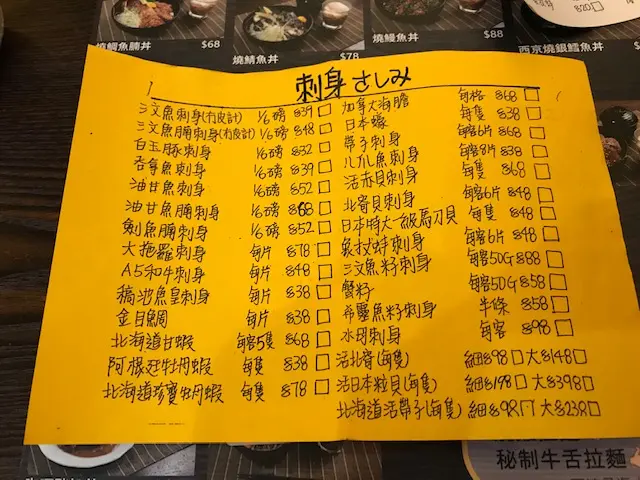 燒鯛魚腩丼 $68
燒鯖魚丼 $78
燒鰻魚丼 $88
西京燒銀鱈魚丼
刺身 さしみ
三文魚刺身(有皮計) 1/6磅 $39 □
三文魚腩刺身(有皮計) 1/6磅 $48 □
白玉豚刺身 1/6磅 $32 □
吞拿魚刺身 1/6磅 $39 □
油甘魚刺身 1/6磅 $52 □
油甘魚腩刺身 1/6磅 $68 □
劍魚腩刺身 1/6磅 $52 □
大拖羅刺身 每片 $78 □
A5和牛刺身 每片 $48 □
稿池魚皇刺身 每片 $38 □
金目鯛 每片 $38 □
北海道甘蝦 每客5隻 $68 □
阿根廷牡丹蝦 每隻 $38 □
北海道珍寶牡丹蝦 每隻 $78 □
加拿大海膽 每格 $68 □
日本蠔 每隻 $38 □
帶子刺身 每客6片 $68 □
八爪魚刺身 每客8片 $38 □
活赤貝刺身 每隻 $68 □
北寄貝刺身 每客6片 $48 □
日本特大一級馬刀貝 每隻 $48 □
象拔蚌刺身 每客6片 $48 □
三文魚籽刺身 每客50G $88 □
蟹籽 每客50G $58 □
希靈魚籽刺身 半條 $58 □
水母刺身 每客 $98 □
活北寄(每隻) 細$98 □ 大$148 □
活日本粒貝(每隻) 細$198 □ 大$398 □
北海道活帶子(每隻) 細$98 □ 大$238 □
秘制牛舌拉麵